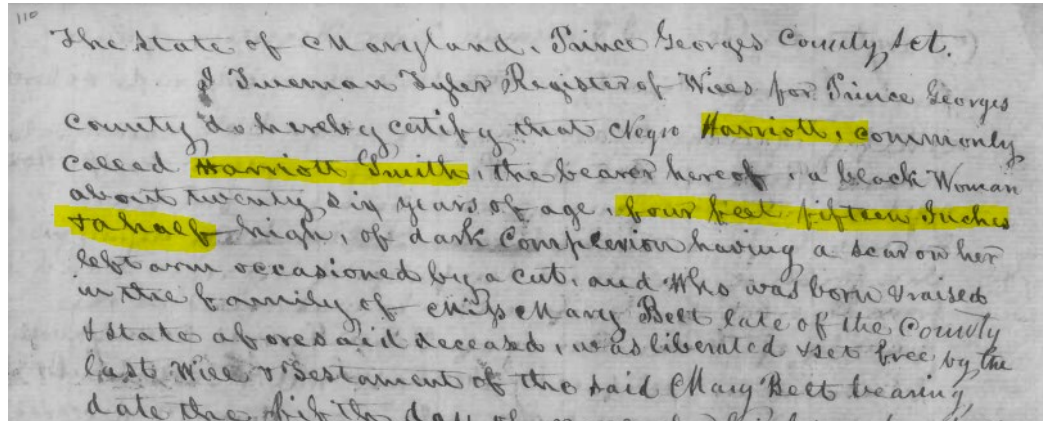 110
The State of Maryland, Prince Georges County Sct.
I Trueman Tyler Register of Wills for Prince Georges
County do hereby certify that Negro Harriott, commonly
called Harriott Smith, the bearer hereof, a black Woman
about twenty six years of age, four feet fifteen Inches
& a half high, of dark Complexion having a scar on her
left arm occasioned by a cut, and who was born & raised
in the family of Miss Mary Belt late of the County
& State aforesaid deceased, was liberated & set free by the
last Will & Testament of the said Mary Belt bearing
date the fifth day of